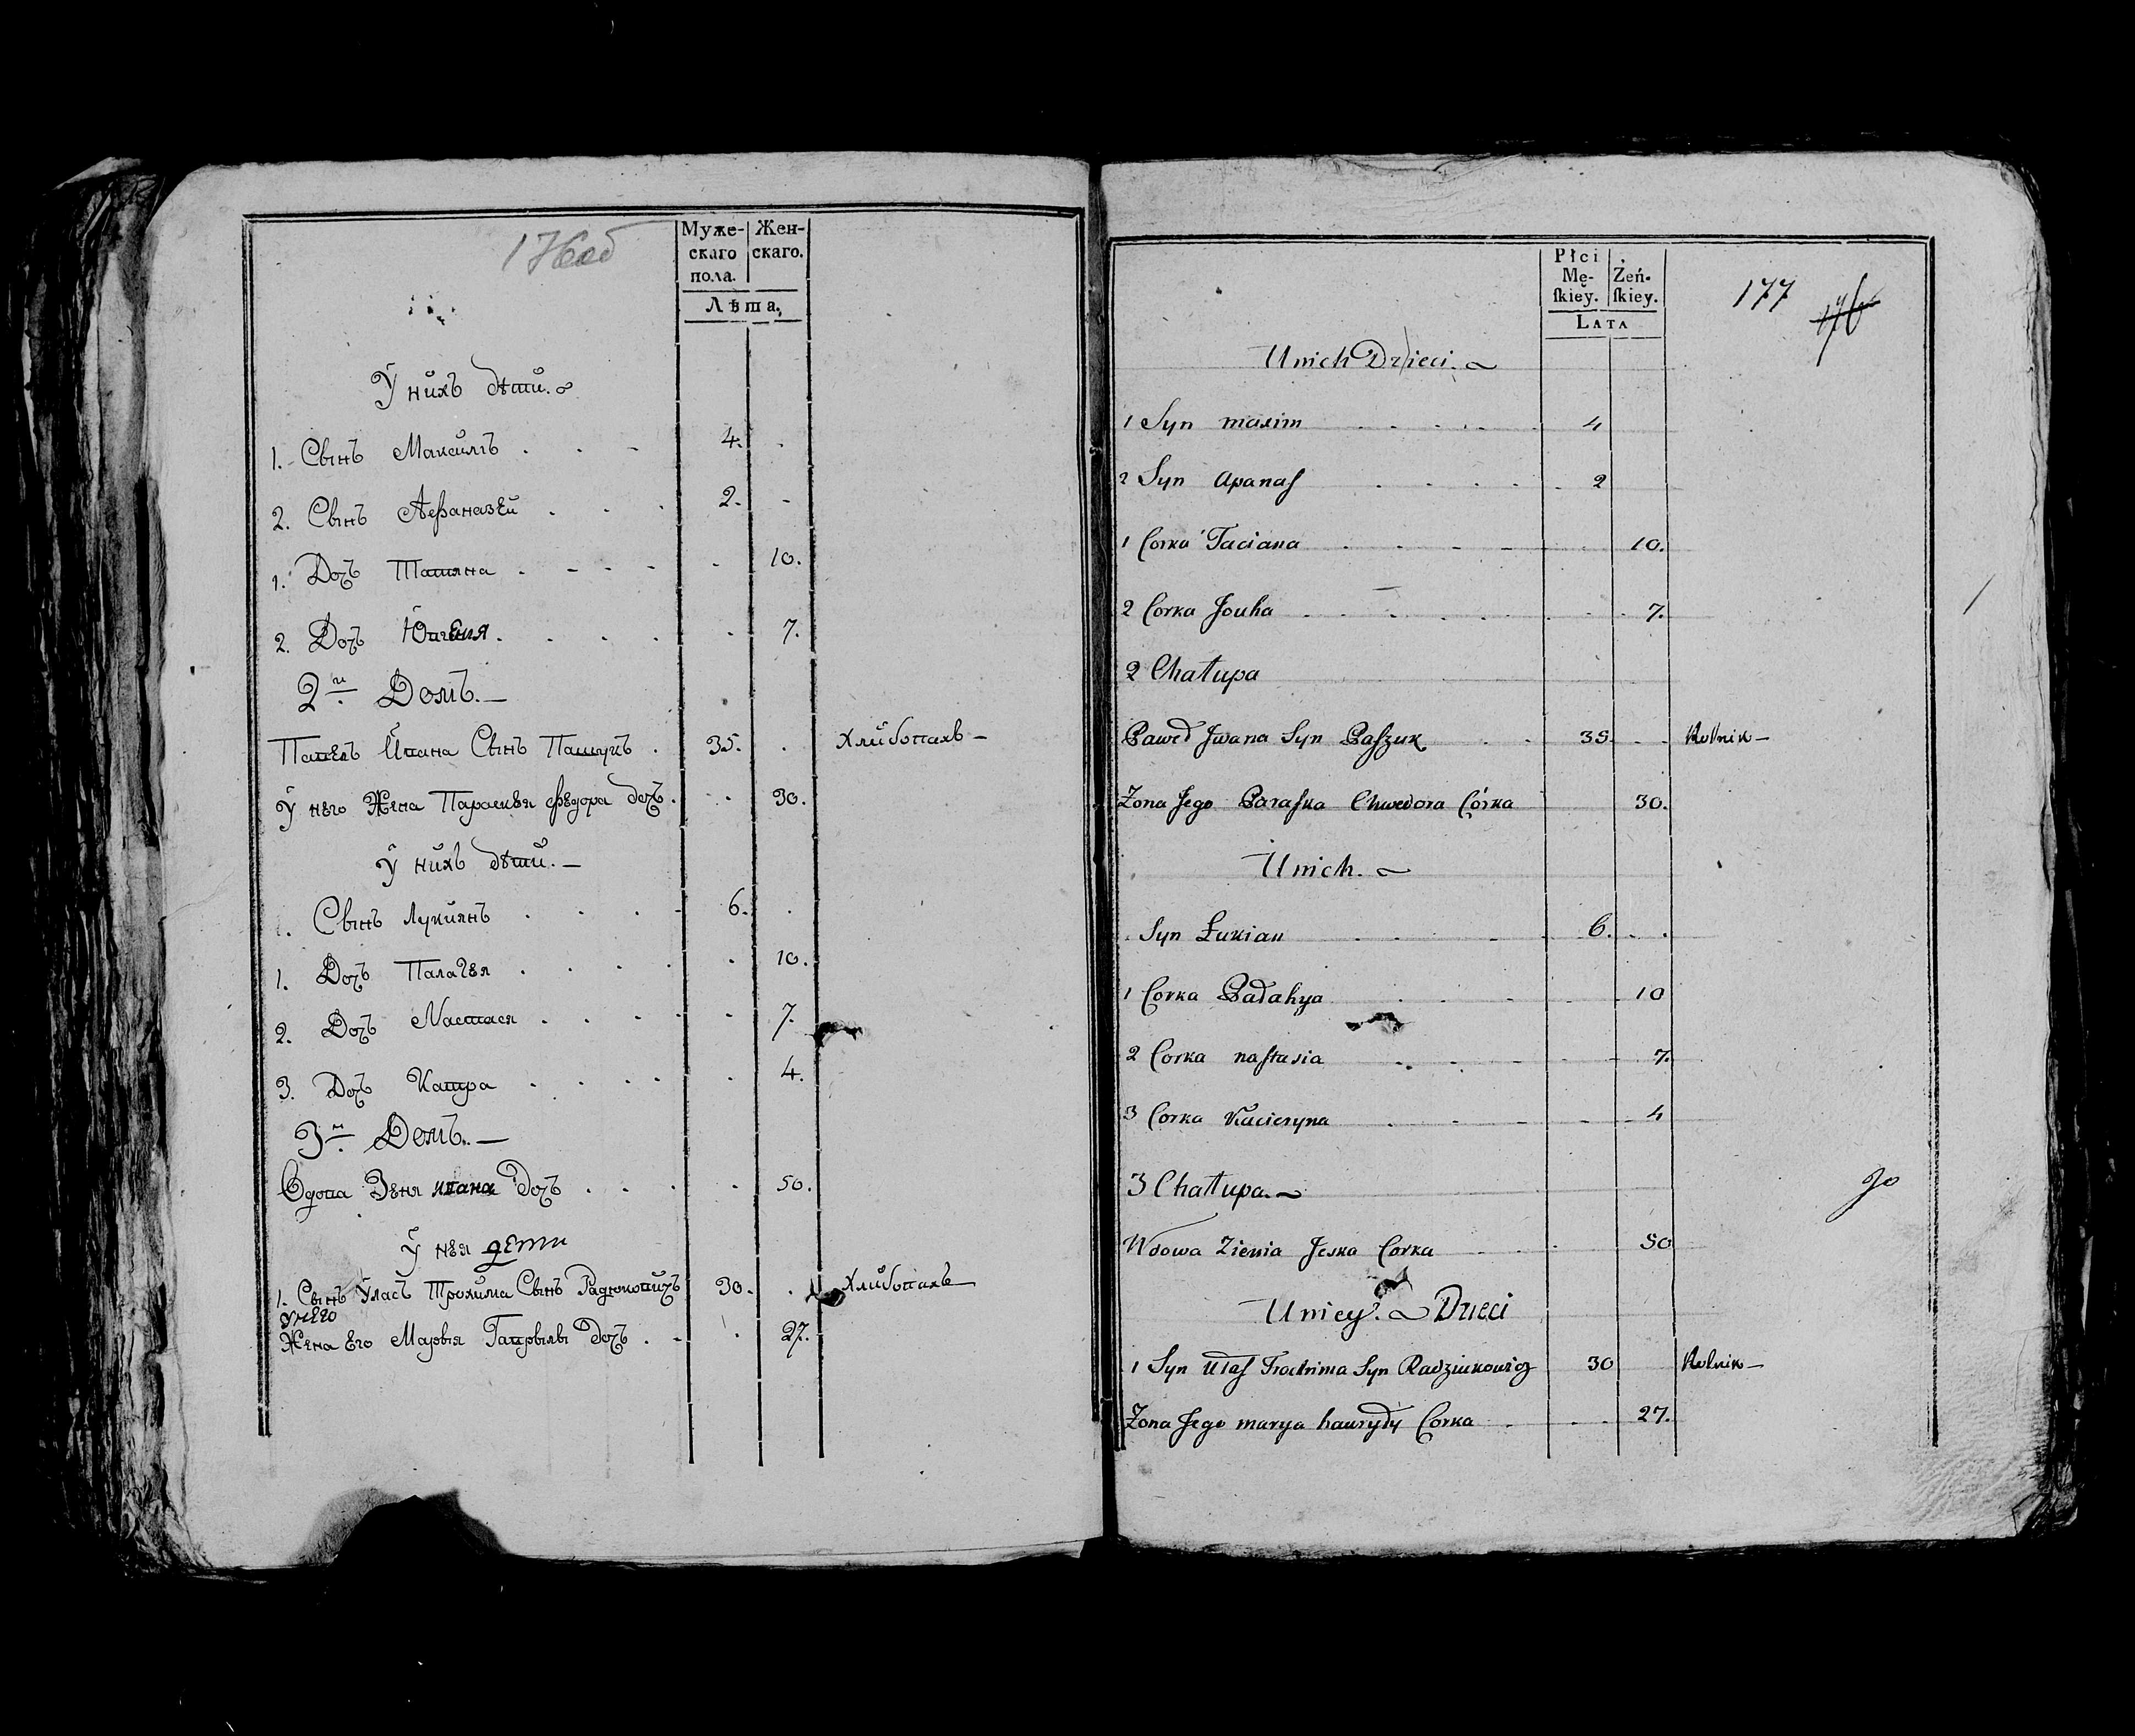 176об
Муже-
скаго
пола.
Жен-
скаго.
Лѣта.
Ў нихъ дѣти.
1. Сынъ Максимъ . . - 4. .
2. Сынъ Аѳаназей . . . 2. -
1. Дочъ Татяна . - - - . 10.
2. Дочъ . . . . . 7.
2й Домъ. —
Павелъ Ивана Сынъ Пашукъ . 35. . Хлибопахъ —
Ў него Жена Параскевя Ѳедора дочъ . . . 30.
ў нихъ дѣти. —
. Сынъ Лукиянъ . . . - 6. .
1. Дочъ Палагея . . . . . 10.
2. Дочъ Настася . . . - - 7.
3. Дочъ Катра . . . . . 4.
3й Домъ. —
Вдова Зеня Ивана Дочъ . . . . 50.
ў нея дети
1. Сынъ Ўласъ Трохима Сынъ Радюковичъ 30. . Хлибопахъ —
унего
Жена Его Маръя Гавръилы Дочъ . - . 27.
Płci
Mę-
ſkiey.
Żeń-
ſkiey.
LATA
177 176
U nich Dzieci.
1 Syn maxim . . . . . 4
2 Syn apanaſ . . . . . 2
1 Corka Taciana . . - - . 10.
2 Corka Jouha . . . . . . . 7.
2 Chałupa
Paweł Jwana Syn Paſzuk . . 35 . . Rolnik —
Zona Jego Paraſka Chwedora Córka 30.
U nich.
. Syn Łukian . . . . 6. . .
1 Corka Pałahya . . . . 10
2 Corka naſtasia . . - - 7.
3 Corka Kacieryna . . . - - 4
3 Chałupa.
30
Wdowa Zienia Jeska Corka . . . . 50
U niey. Dzieci
1 Syn Ułaſ Trochima Syn Radziukowicz 30 Rolnik —
Zona Jego marya hawryły Corka . . . 27.